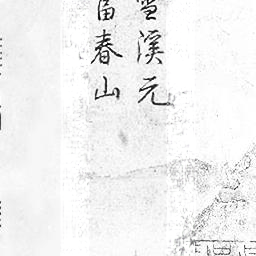 溪元
富春山